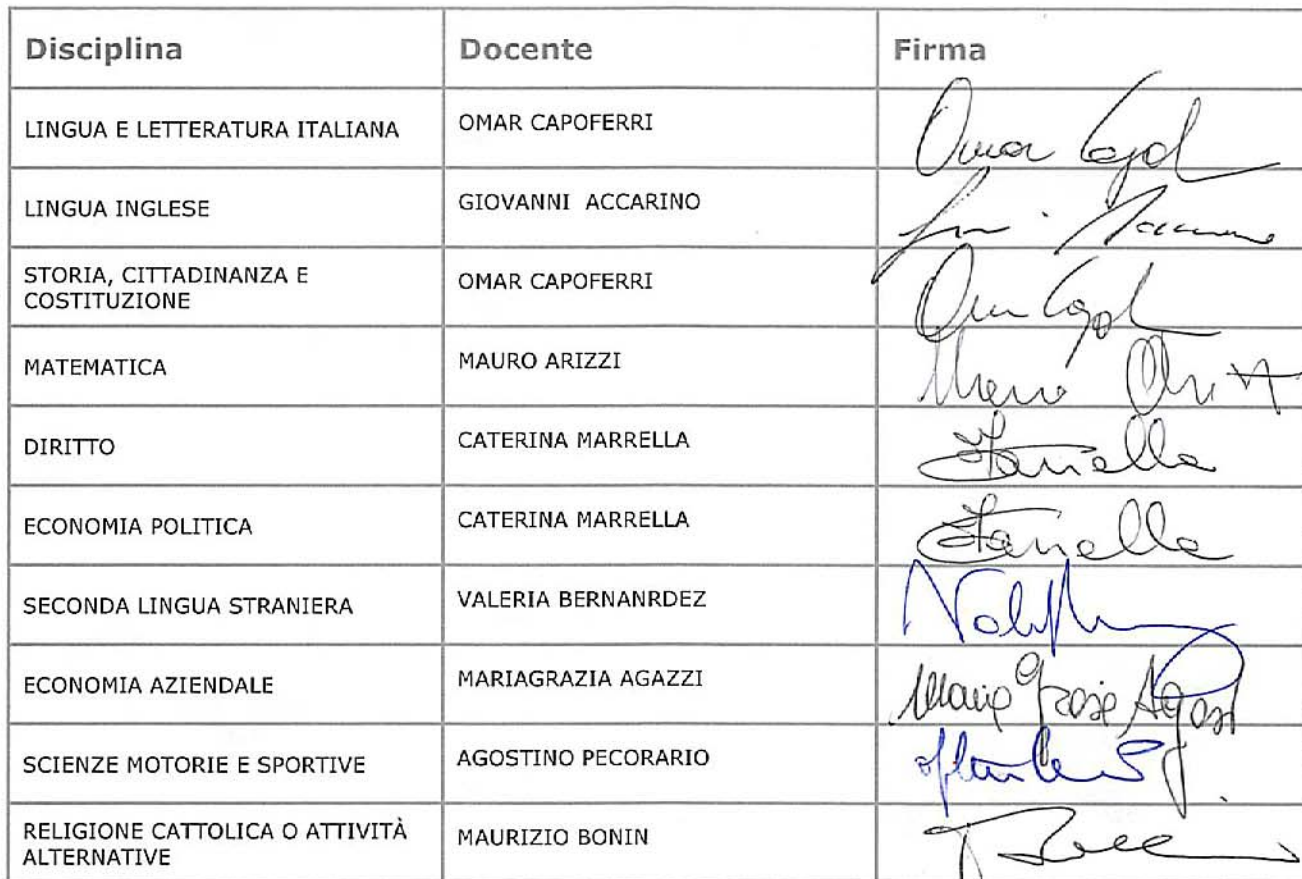 Disciplina Docente Firma
LINGUA E LETTERATURA ITALIANA OMAR CAPOFERRI
LINGUA INGLESE GIOVANNI ACCARINO
STORIA, CITTADINANZA E
COSTITUZIONE OMAR CAPOFERRI
MATEMATICA MAURO ARIZZI
DIRITTO CATERINA MARRELLA
ECONOMIA POLITICA CATERINA MARRELLA
SECONDA LINGUA STRANIERA VALERIA BERNANRDEZ
ECONOMIA AZIENDALE MARIAGRAZIA AGAZZI
SCIENZE MOTORIE E SPORTIVE AGOSTINO PECORARIO
RELIGIONE CATTOLICA O ATTIVITÀ
ALTERNATIVE MAURIZIO BONIN